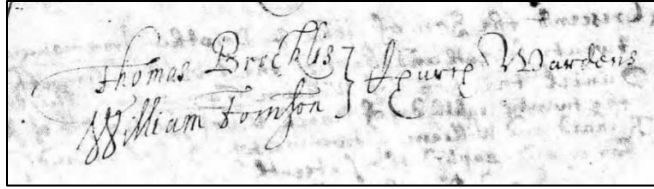 Thomas } Church Wardens
William Tomson